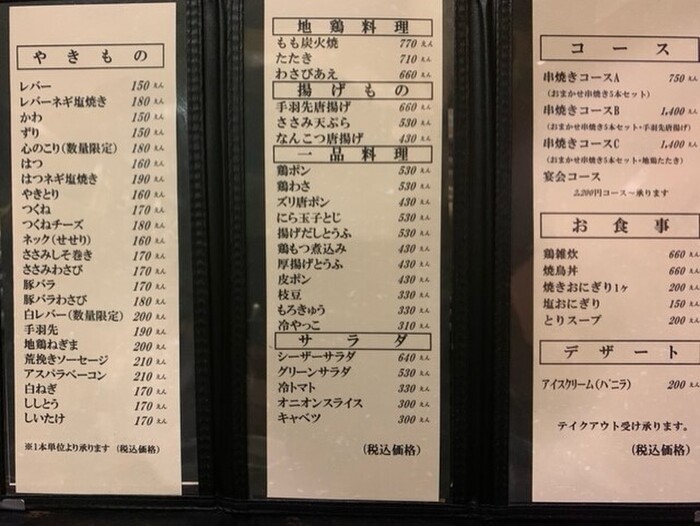 やきもの
レバー 150えん
レバーネギ塩焼き 180えん
かわ 150えん
ずり 150えん
心のこり(数量限定) 180えん
はつ 160えん
はつネギ塩焼き 190えん
やきとり 160えん
つくね 170えん
つくねチーズ 180えん
ネック(せせり) 160えん
ささみしそ巻き 170えん
ささみわさび 170えん
豚バラ 170えん
豚バラわさび 180えん
白レバー(数量限定) 200えん
手羽先 190えん
地鶏ねぎま 200えん
荒挽きソーセージ 210えん
アスパラベーコン 210えん
白ねぎ 170えん
ししとう 170えん
しいたけ 170えん
※1本単位より承ります (税込価格)
地鶏料理
もも炭火焼 770えん
たたき 710えん
わさびあえ 660えん
揚げもの
手羽先唐揚げ 660えん
ささみ天ぷら 530えん
なんこつ唐揚げ 430えん
一品料理
鶏ポン 530えん
鶏わさ 530えん
ズリ唐ポン 530えん
にら玉子とじ 530えん
揚げだしとうふ 530えん
鶏もつ煮込み 430えん
厚揚げとうふ 430えん
皮ポン 430えん
枝豆 330えん
もろきゅう 330えん
冷やっこ 310えん
サラダ
シーザーサラダ 640えん
グリーンサラダ 530えん
冷トマト 330えん
オニオンスライス 300えん
キャベツ 300えん
(税込価格)
コース
串焼きコースA 750えん
(おまかせ串焼き5本セット)
串焼きコースB 1,400えん
(おまかせ串焼き5本セット・手羽先唐揚げ)
串焼きコースC 1,400えん
(おまかせ串焼き5本セット・地鶏たたき)
宴会コース
2,200円コース～承ります
お食事
鶏雑炊 660えん
焼鳥丼 660えん
焼きおにぎり1ヶ 200えん
塩おにぎり 150えん
とりスープ 200えん
デザート
アイスクリーム(バニラ) 200えん
テイクアウト受け承ります。
(税込価格)